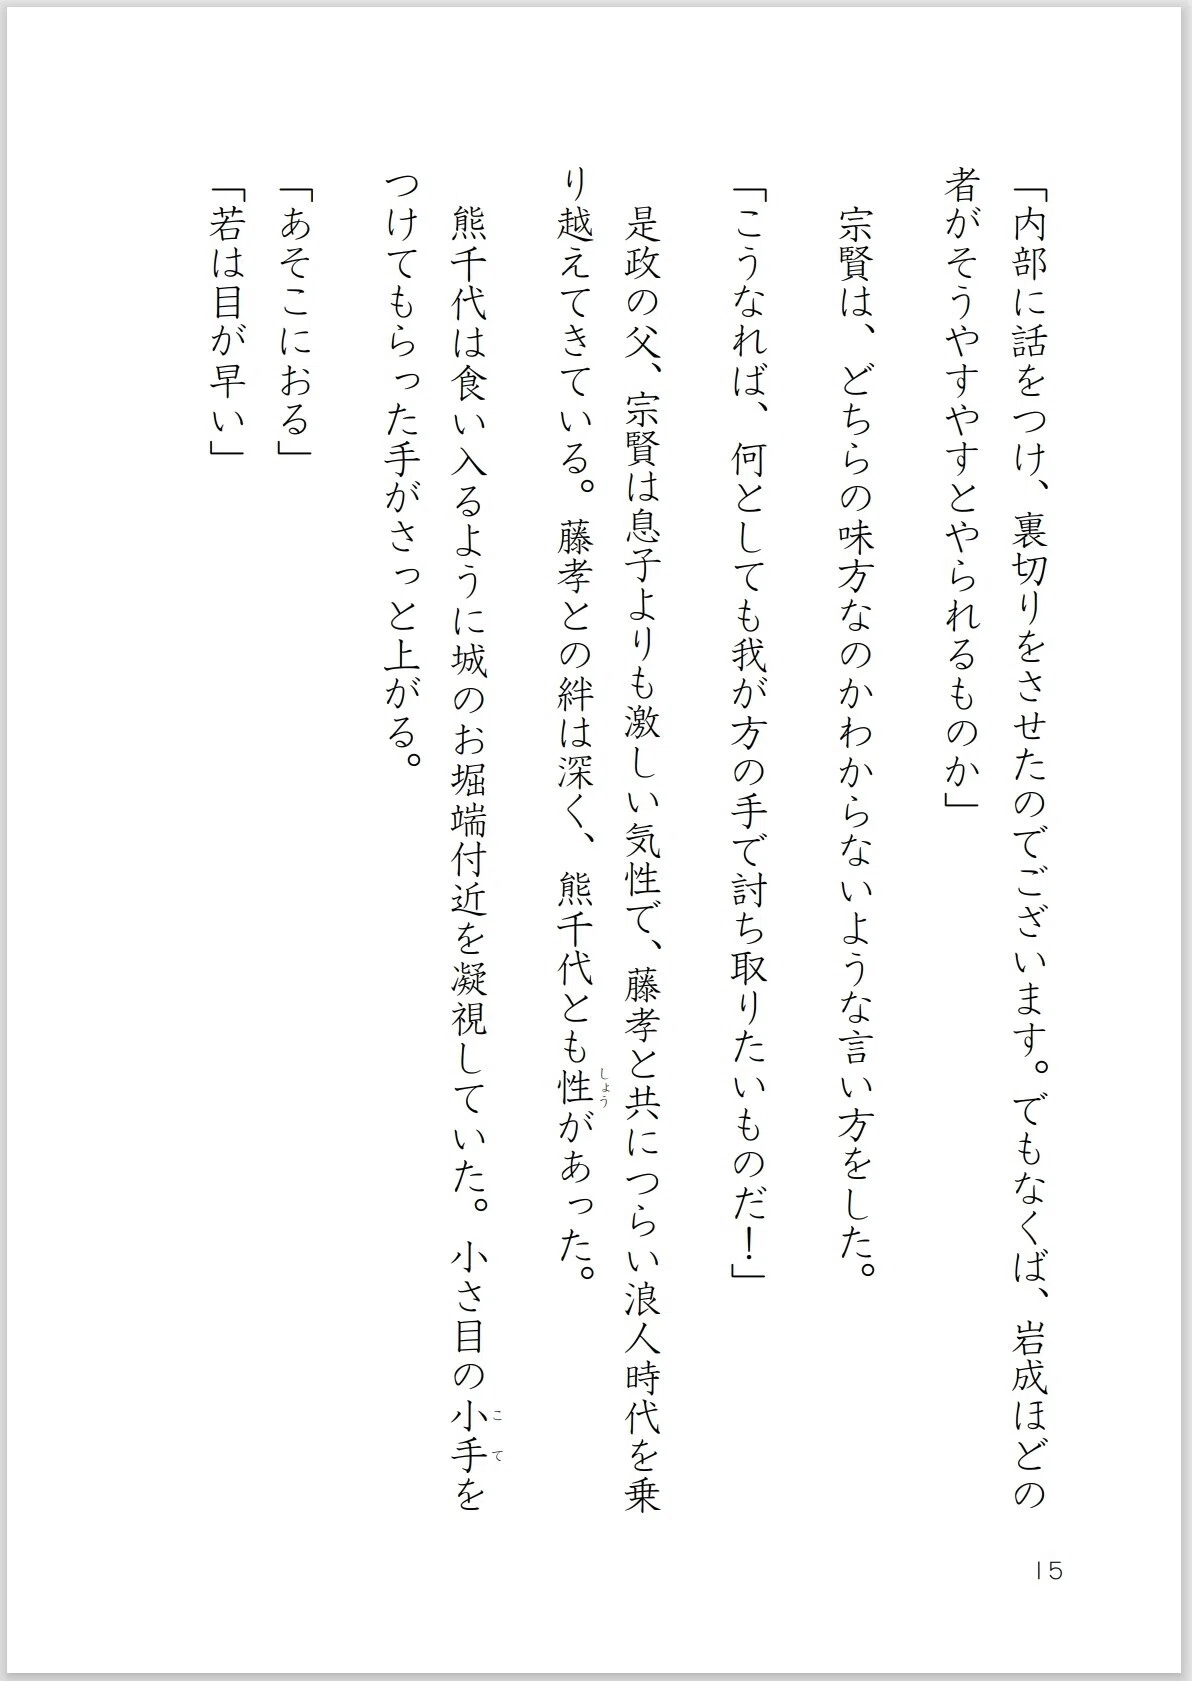 「内部に話をつけ、裏切りをさせたのでございます。でもなくば、岩成ほどの
者がそうやすやすとやられるものか」
宗賢は、どちらの味方なのかわからないような言い方をした。
「こうなれば、何としても我が方の手で討ち取りたいものだ！」
是政の父、宗賢は息子よりも激しい気性で、藤孝と共につらい浪人時代を乗
り越えてきている。藤孝との絆は深く、熊千代とも性があった。
しょう
熊千代は食い入るように城のお堀端付近を凝視していた。小さ目の小手を
こて
つけてもらった手がさっと上がる。
「あそこにおる」
「若は目が早い」
15